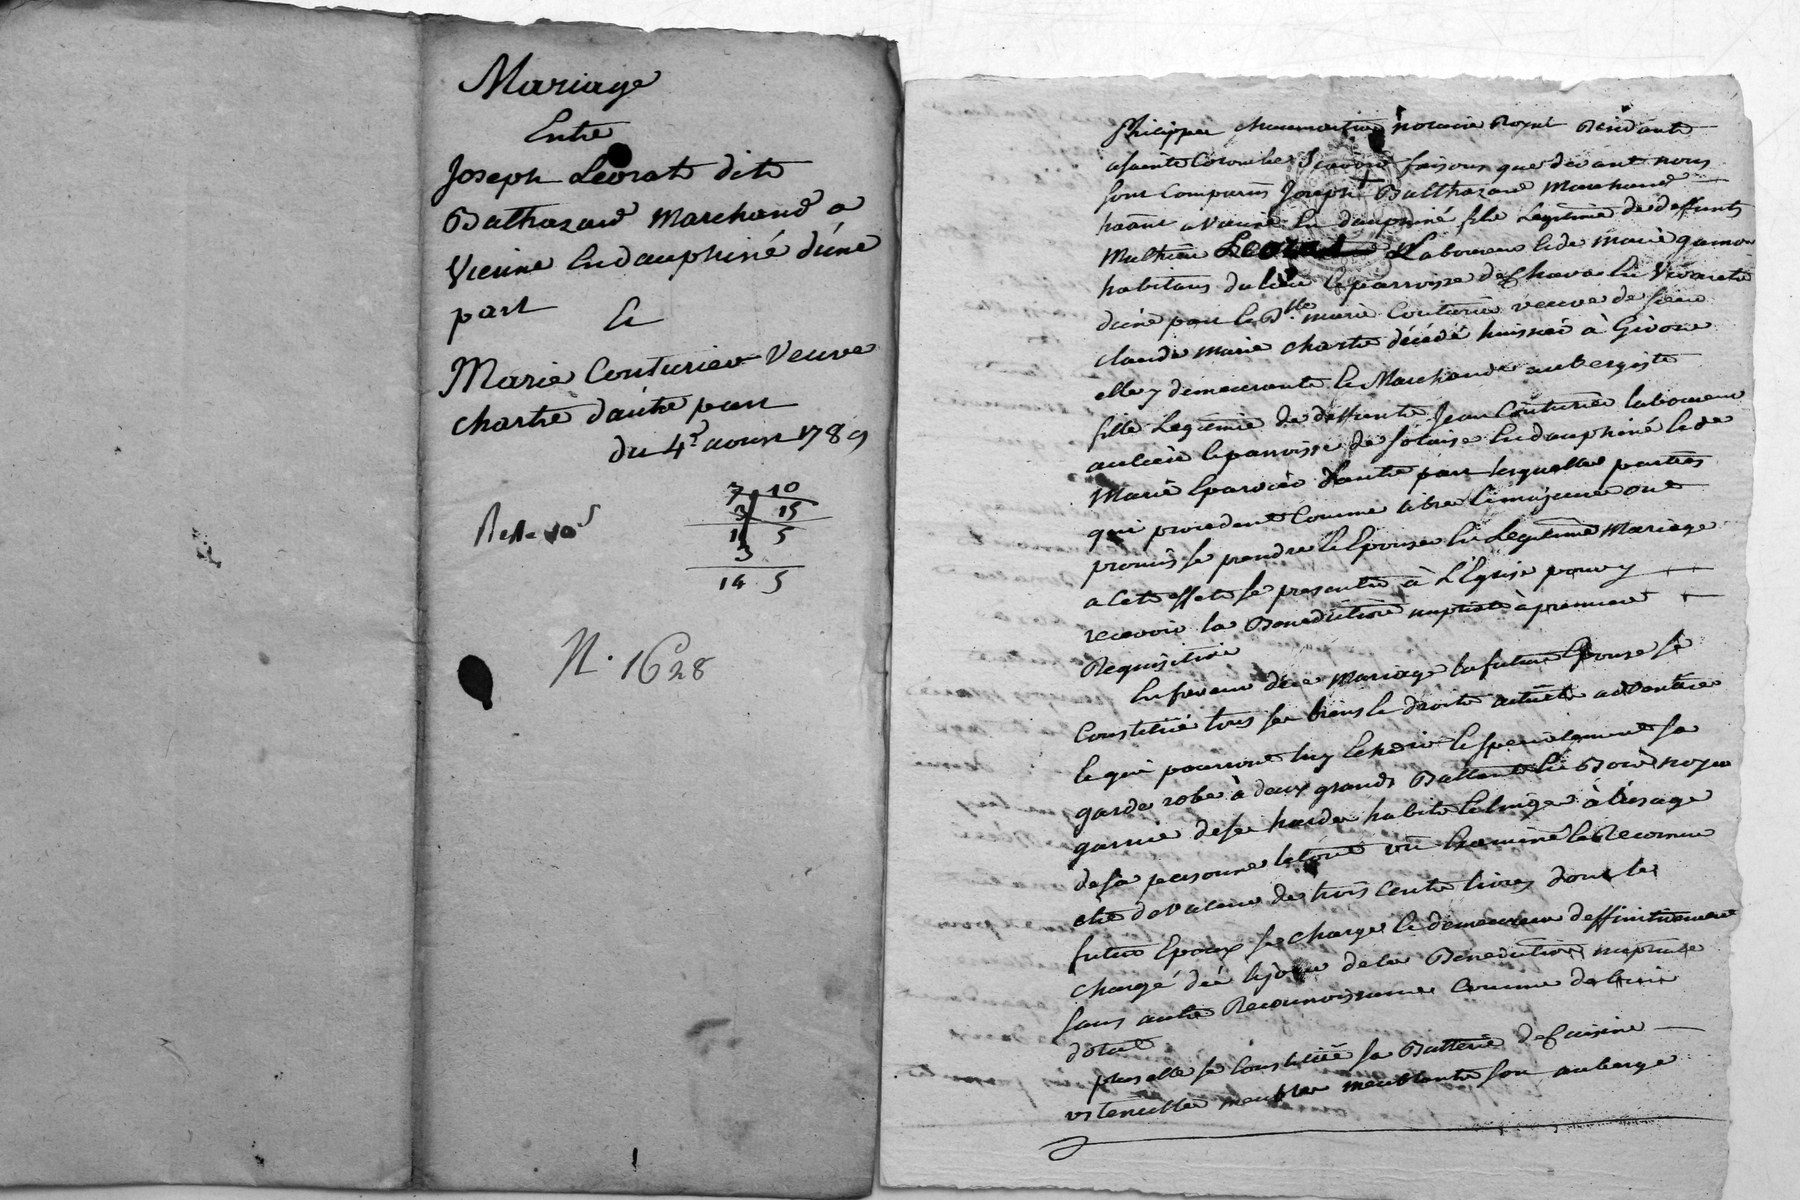 Mariage
Entre
Joseph Leorat dit
Balthazard Marchand a
Vienne En dauphiné d'une
part
Et
Marie Couturier Veuve
chartre d'autre part
du 4e aoust 1789
7 10
3 15
1 5
3
14 5
N. 1628
Philippe notaire Royal Residant
asainte Colombe Scavoir faisons que devant nous
sont Comparus Joseph Balthazard Marchand
habitant a Vienne En dauphiné fils Legitime de deffunts
Mathieu Leorat Laboureur & de Marie gamon
habitans du lieu & parroisse de Chavas En Vivarets
d'une part & Dlle marie Couturier veuve de sieur
claude marie chartre décédé huissier à Givors
elle y demeurante & Marchande aubergiste
fille Legitime de deffunts Jean Couturier laboureur
au lieu & parroisse de Solaise En dauphiné & de
Marie Eparvier d'autre part lesquelles parties
qui procedent Comme libres & majeures ont
promis se prendre & Epouser En Legitime Mariage
a Cet effet se presenter à L'Eglise pour y
recevoir la Benediction nuptiale à premiere
Requisition
En faveur dece Mariage la future Epouse se
Constitue tous ses biens & droits actuels
& qui pourront luy Echoir & specialement sa
garde robe à deux grands Battants En Bois noyer
garnie de ses hardes habits & linge à l'usage
de sa personne le tout vu Examiné & Reconnu
etre de valeur de trois Cents livres dont le
futur Epoux se charge & demeurera deffinitivement
chargé dès le jour de la Benediction nuptiale
sans autre Reconnoissance Comme de bien
dotal
plus elle se Constitue sa Batterie de Cuisine
ustencilles meubles meublants son auberge